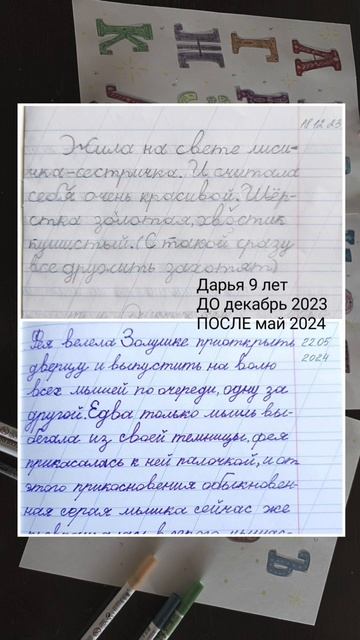 К Ж Г А
18.12.23
Жила на свете лиси-
чка-сестричка. И считала
себя очень красивой. Шёр-
стка золотая, хвостик
пушистый. (С такой сразу
все дружить захотят)
Дарья 9 лет
ДО декабрь 2023
ПОСЛЕ май 2024
Фея велела Золушке приоткрыть
22.05
2024
дверцу и выпустить на волю
всех мышей по очереди, одну за
другой. Едва только мышь вы-
бегала из своей темницы, фея
прикасалась к ней палочкой, и от
этого прикосновения обыкновен-
ная серая мышка сейчас же